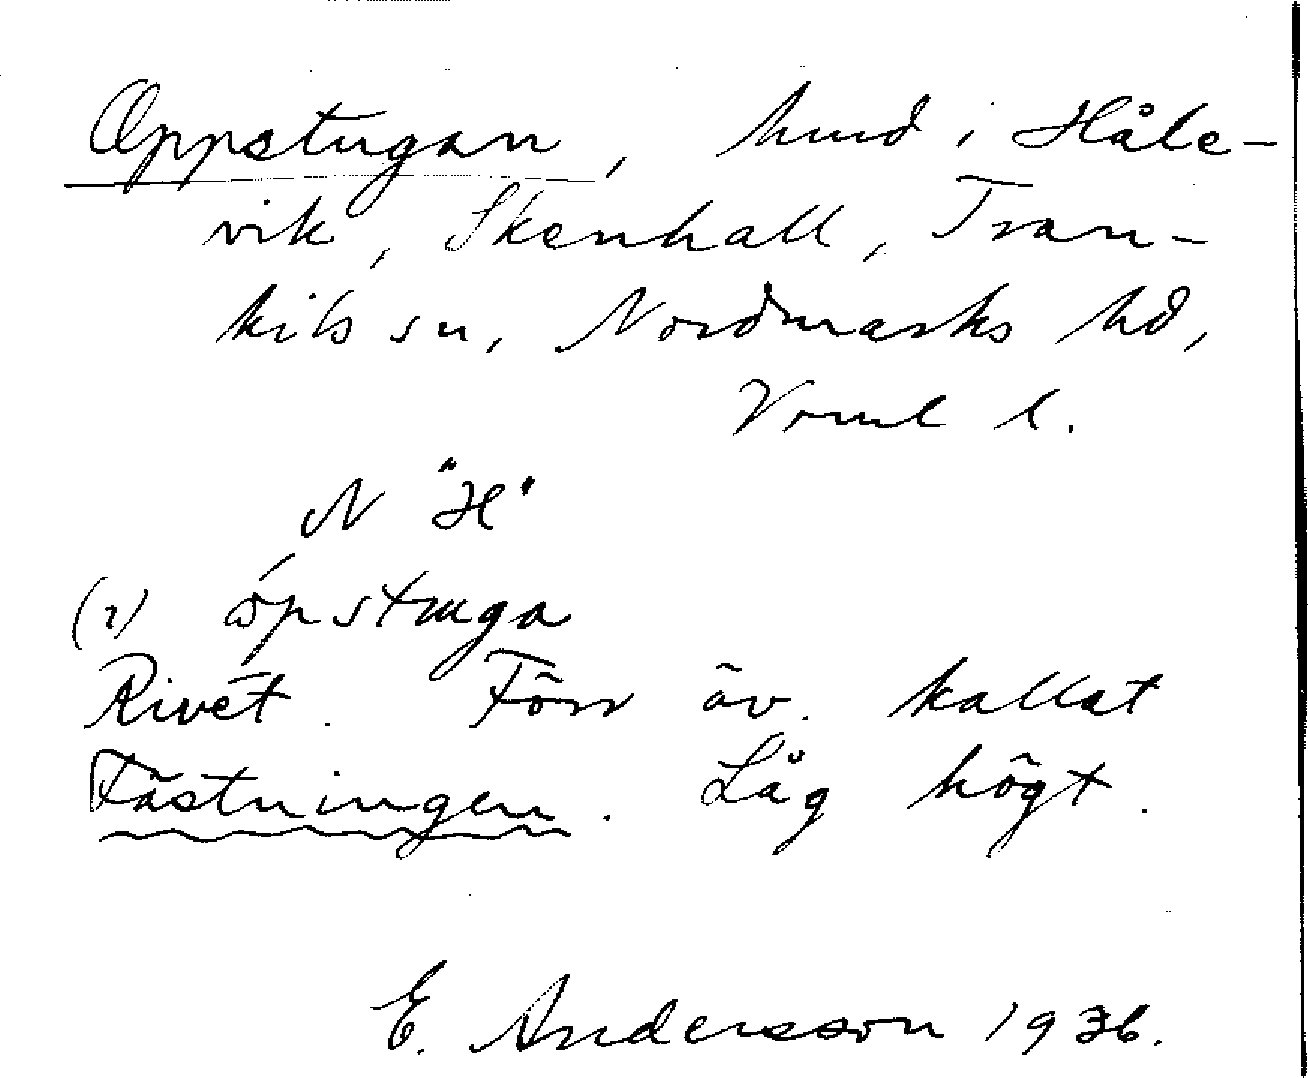 Oppstugan, hmd i Håle-
vik, Skenhall, Tran-
kils sn, Nordmarks hd,
Vrml l.
N "H"
(1) öpstuga
Rivet. Förr äv. kallat
Fästningen. Låg högt.
E. Andersson 1936.